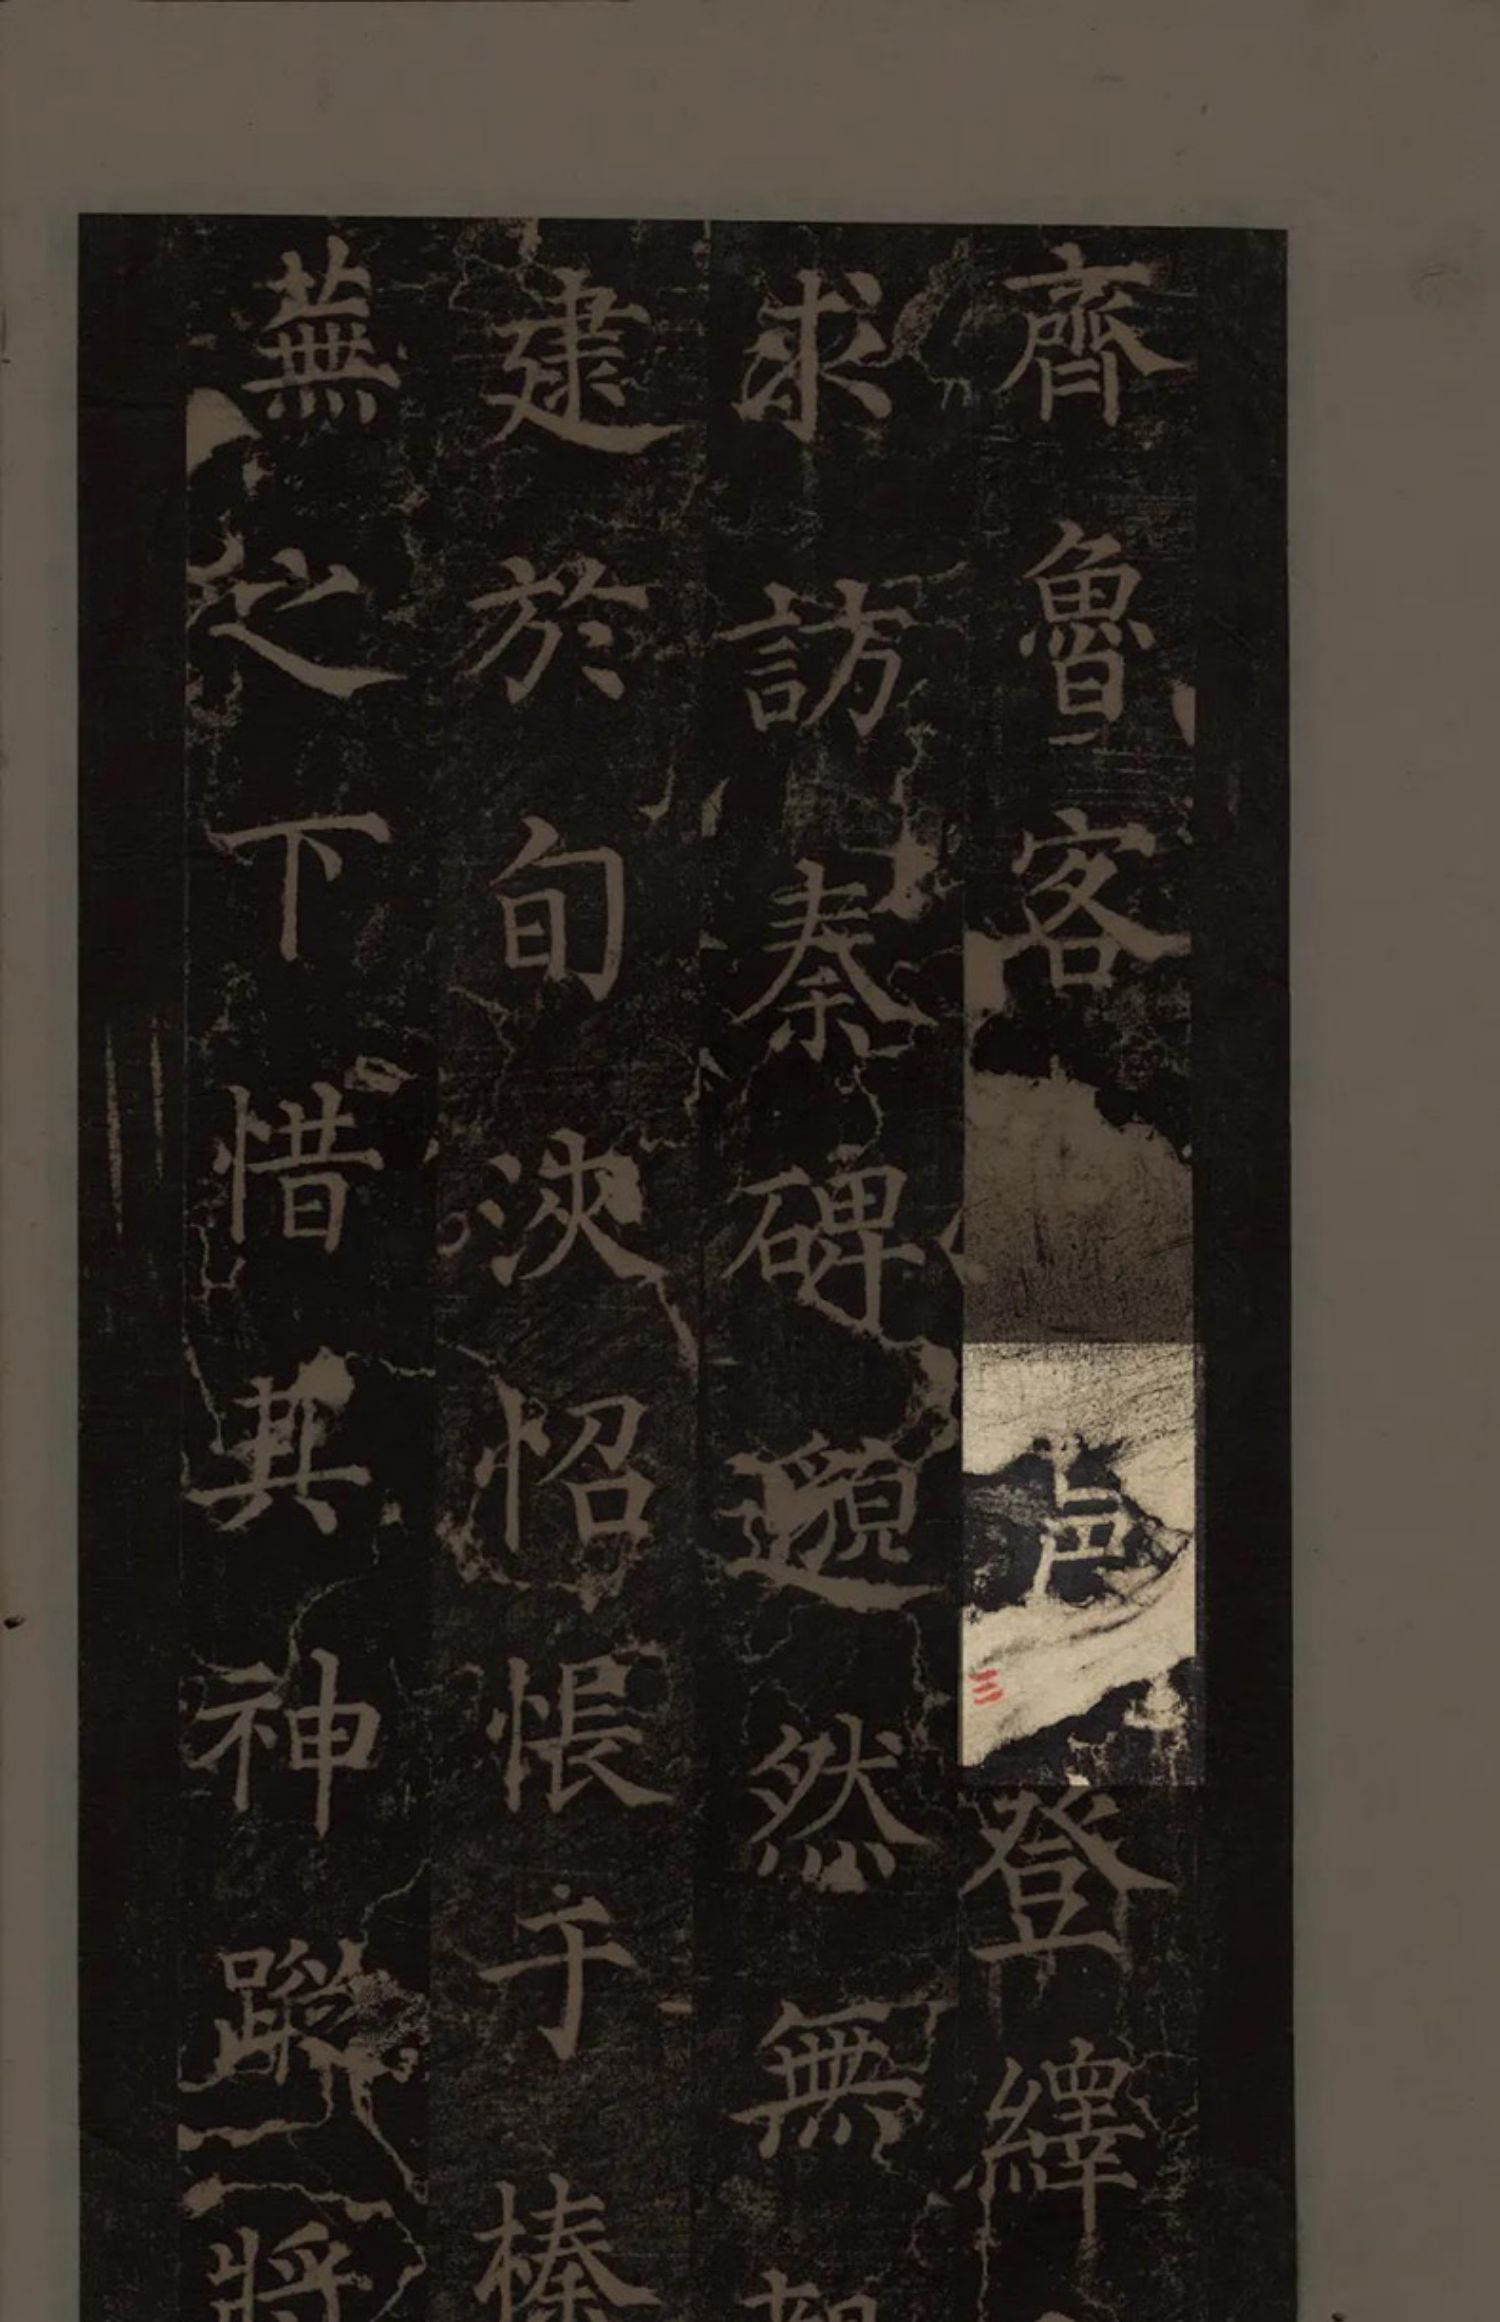 齊魯客邑登繹
求訪秦碑邈然無
逮於旬浹怊悵于榛
蕪之下惜其神蹤將